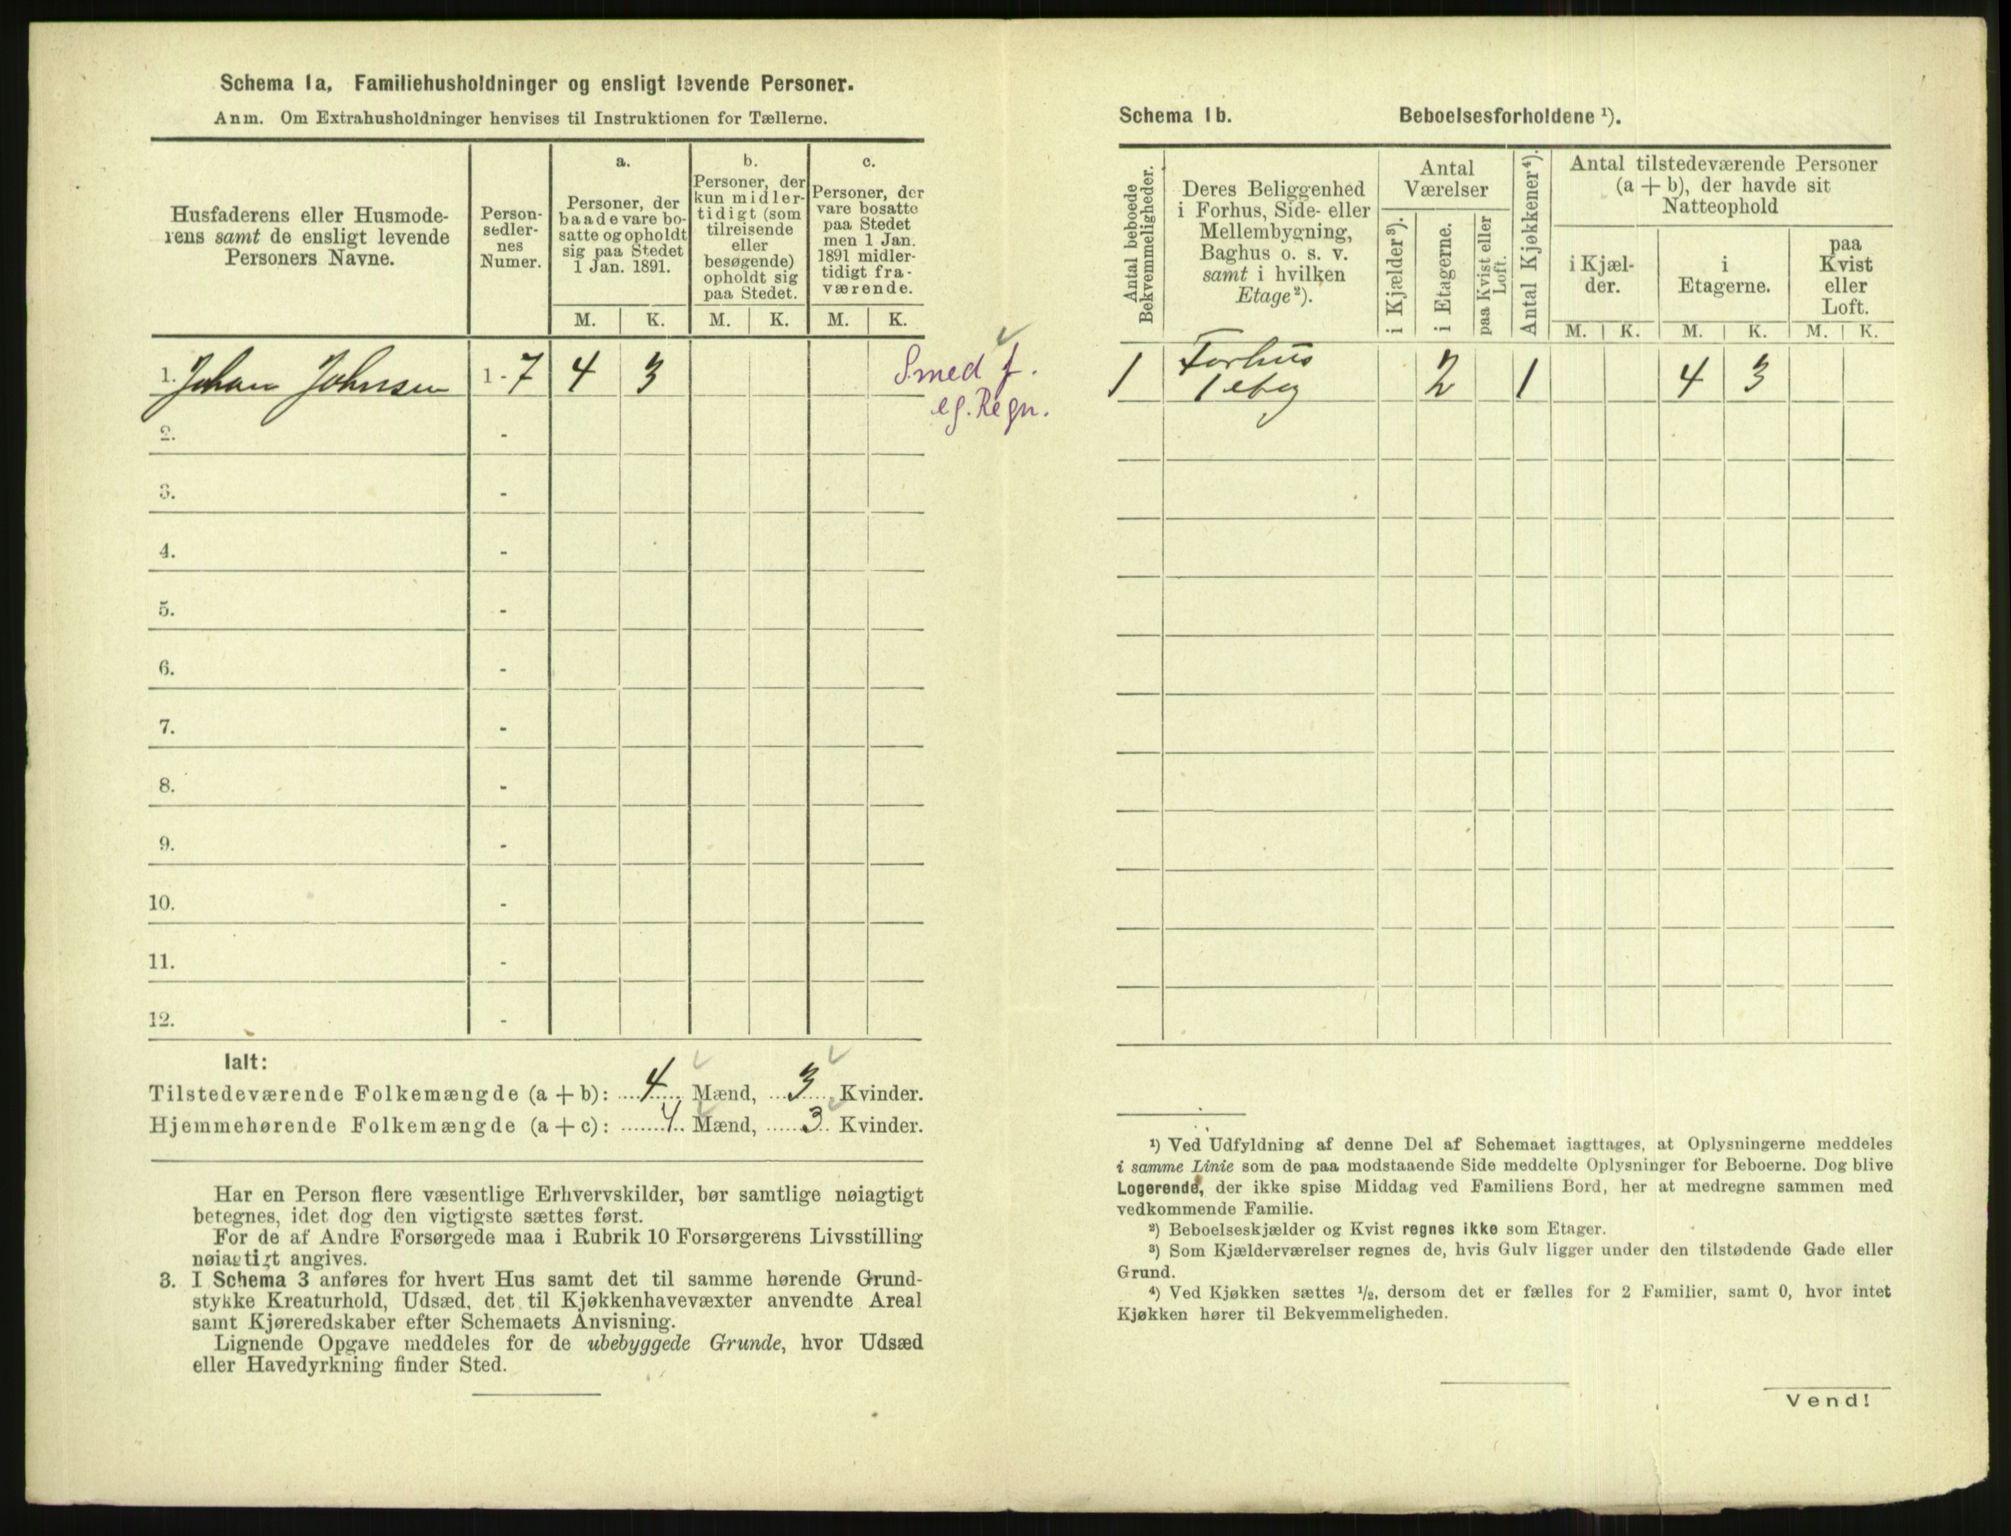 Schema 1a, Familiehusholdninger og ensligt levende Personer.
Anm. Om Extrahusholdninger henvises til Instruktionen for Tællerne.
Husfaderens eller Husmode-
rens samt de ensligt levende
Personers Navne.
Person-
sedler-
nes
Numer.
a.
Personer, der
baade vare bo-
satte og opholdt
sig paa Stedet
1 Jan. 1891.
b.
Personer, der
kun midler-
tidigt (som
tilreisende
eller
besøgende)
opholdt sig
paa Stedet.
c.
Personer, der
vare bosatte
paa Stedet
men 1 Jan.
1891 midler-
tidigt fra-
værende.
M. K. M. K. M. K.
1. Johan Johnsen 1-7 4 3
Smed f.
eg. Regn.
2. -
3. -
4. -
5. -
6. -
7. -
8. -
9. -
10. -
11. -
12. -
Ialt:
Tilstedeværende Folkemængde (a + b): 4 Mænd, 3 Kvinder.
Hjemmehørende Folkemængde (a + c): 4 Mænd, 3 Kvinder.
Har en Person flere væsentlige Erhvervskilder, bør samtlige nøiagtigt
betegnes, idet dog den vigtigste sættes først.
For de af Andre Forsørgede maa i Rubrik 10 Forsørgerens Livsstilling
nøiagtigt angives.
3. I Schema 3 anføres for hvert Hus samt det til samme hørende Grund-
stykke Kreaturhold, Udsæd, det til Kjøkkenhavevæxter anvendte Areal
samt Kjøreredskaber efter Schemaets Anvisning.
Lignende Opgave meddeles for de ubebyggede Grunde, hvor Udsæd
eller Havedyrkning finder Sted.
Schema 1b. Beboelsesforholdene ¹).
Antal beboede
Bekvemmeligheder.
Deres Beliggenhed
i Forhus, Side- eller
Mellembygning,
Baghus o. s. v.
samt i hvilken
Etage²).
Antal
Værelser
i Kjælder³).
i Etagerne.
paa Kvist eller
Loft.
Antal Kjøkkener⁴).
Antal tilstedeværende Personer
(a + b), der havde sit
Natteophold
i Kjæl-
der.
i
Etagerne.
paa
Kvist
eller
Loft.
M. K. M. K. M. K.
1 Forhus 2 1 4 3
1 etag
¹) Ved Udfyldning af denne Del af Schemaet iagttages, at Oplysningerne meddeles
i samme Linie som de paa modstaaende Side meddelte Oplysninger for Beboerne. Dog blive
Logerende, der ikke spise Middag ved Familiens Bord, her at medregne sammen med
vedkommende Familie.
²) Beboelseskjælder og Kvist regnes ikke som Etager.
³) Som Kjælderværelser regnes de, hvis Gulv ligger under den tilstødende Gade eller
Grund.
⁴) Ved Kjøkken sættes ½, dersom det er fælles for 2 Familier, samt 0, hvor intet
Kjøkken hører til Bekvemmeligheden.
Vend!